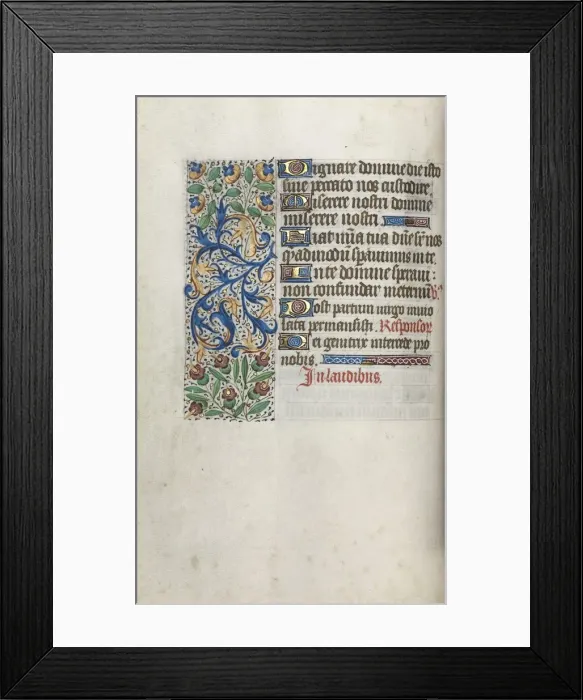 Dignare domine die isto
sine peccato nos custodire.
Miserere nostri domine
miserere nostri.
Fiat mīa tua dn̄e sr̄ nos
q̄admodū sp̄auimus in te.
In te domine speraui:
non confundar ineternū. v.
Post partum uirgo inuio
lata permansisti. Responsor
Dei genitrix intercede pro
nobis.
In laudibus.